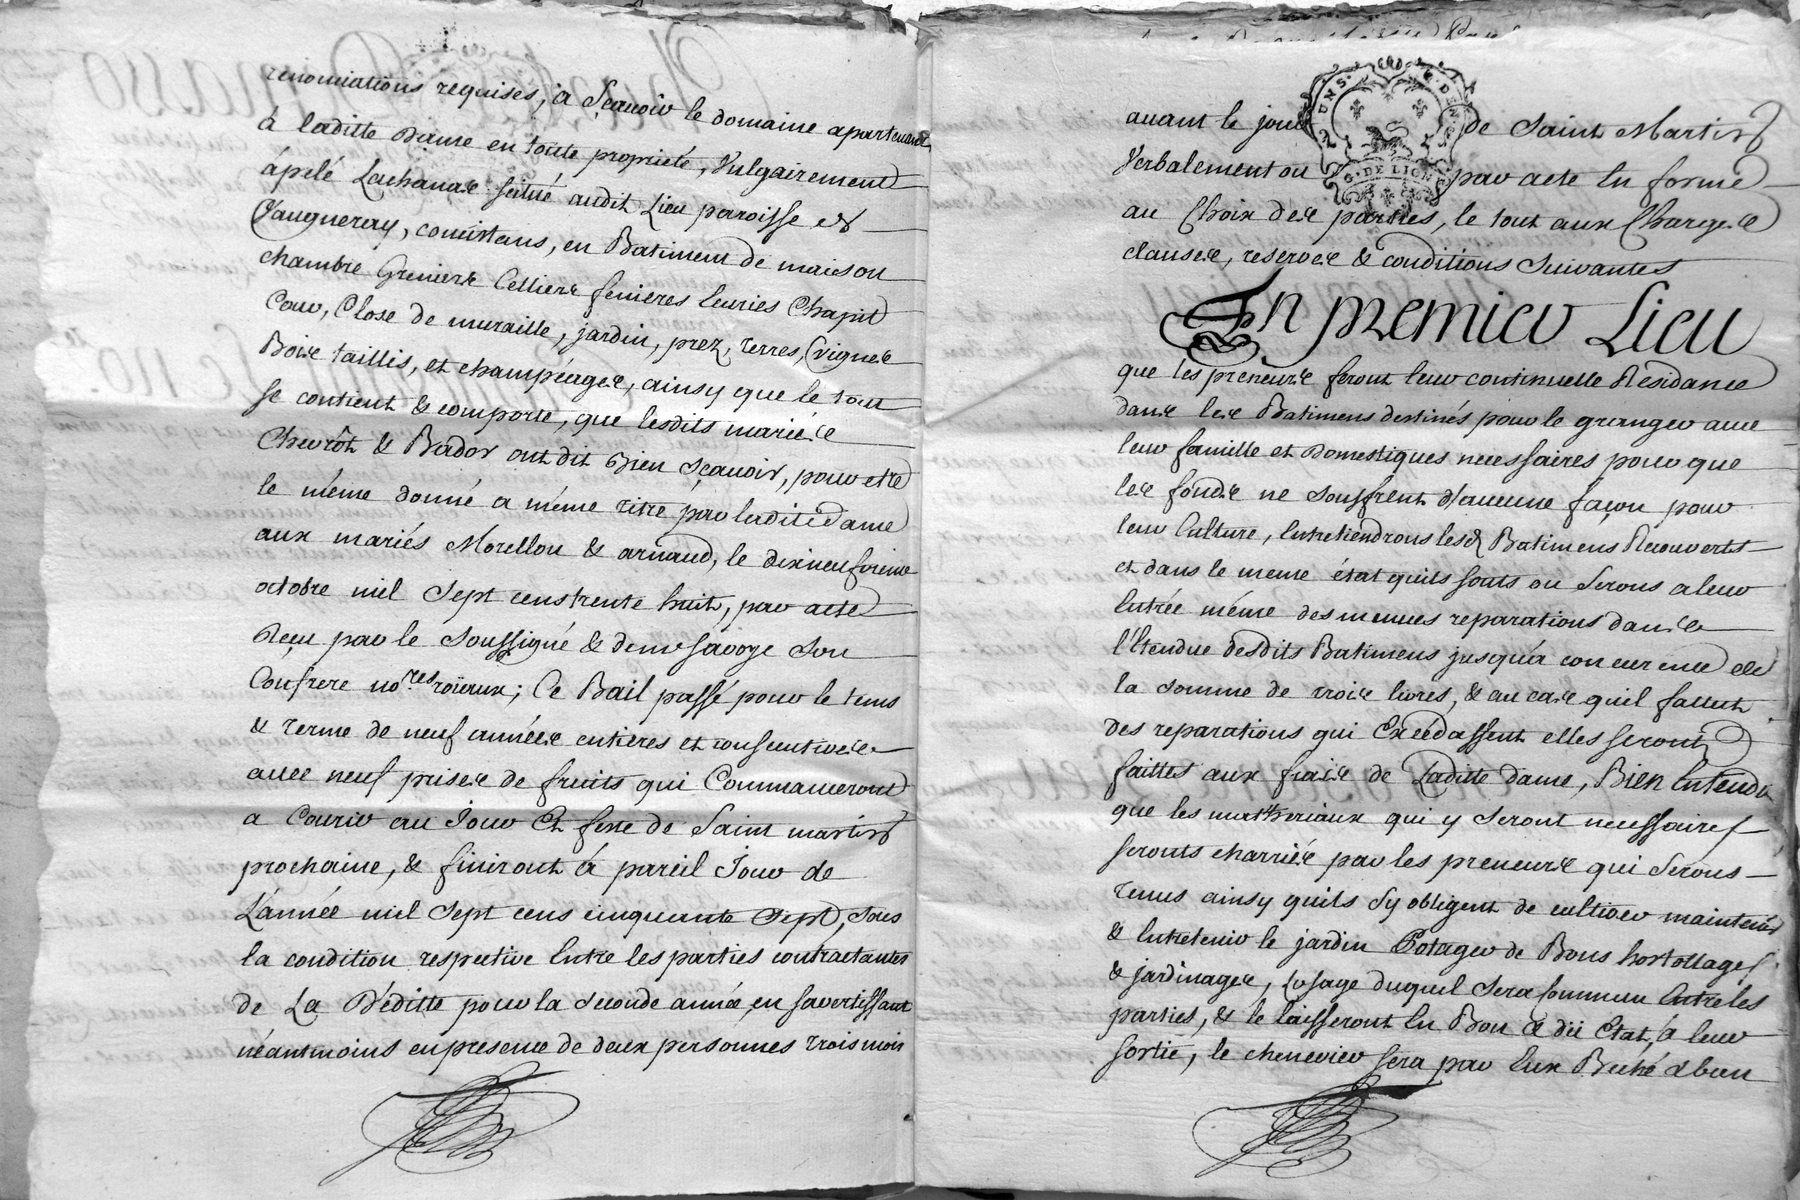 renonciations requises, a Sçauoir le domaine apartenant
à laditte Dame en toute proprieté, Vulgairement
apélé Lachanas scitué audit Lieu paroisse de
Vaugneray, consistans, en Batiment de maison
chambre Greniers Celliers fenieres Ecuries Chapit
Cour, Close de muraille, jardin, prez, terres, vignes
Bois taillis, et champéages, ainsy que le tout
se contient & comporte, que lesdits mariés
Chevrôt & Bador ont dit Bien sçauoir, pour etre
le méme donné a méme titre par ladite dame
aux mariés Morellon & arnaud, le dixneufvieme
octobre mil Sept cens trente huit, par acte
Reçu par le Soussigné & de me savoye son
Confrere no.res roïeaux; Ce Bail passé pour le tems
& terme de neuf années entieres et consecutives
auec neuf prises de fruits qui Commanceront
a Courir au Jour Et feste de Saint martin
prochaine, & finiront à pareil Jour de
L'année mil Sept cens cinquante Sept, sous
la condition respective Entre les parties contractantes
de La Déditte pour la seconde année en savertissant
néantmoins en presence de deux personnes trois mois
auant le jour de Saint Martin
Verbalement ou par acte En forme
au Choix des parties, le tout aux Charges
clauses, reserves & conditions suivantes
G. DE LION
En premier Lieu
que les preneurs feront leur continuelle Residance
dans les Batimens destinés pour le granger auec
leur famille et Domestiques necessaires pour que
les fonds ne souffrent d'aucune façon pour
leur Culture, Entretiendrons lesd. Batimens Recouverts
et dans le meme état quils sonts ou Serons a leur
Entrée méme des menues reparations dans
l'Etendue desdits Batimens jusqu'a concurence de
la somme de trois livres, & au cas quil fallut
des reparations qui Excédassent elles seront
faittes aux frais de Laditte dame, Bien Entendu
que les mattheriaux qui y seront necessaires
seronts charriés par les preneurs qui Serons
tenus ainsy quils Sy obligent de cultiver maintenir
& Entretenir le jardin Potager de Bons hortollages
& jardinages, Lusage duquel sera Commun Entre les
parties, & le laisseront En Bon & dü Etat, a leur
sortie, le chenevier sera par Eux Beché & bien